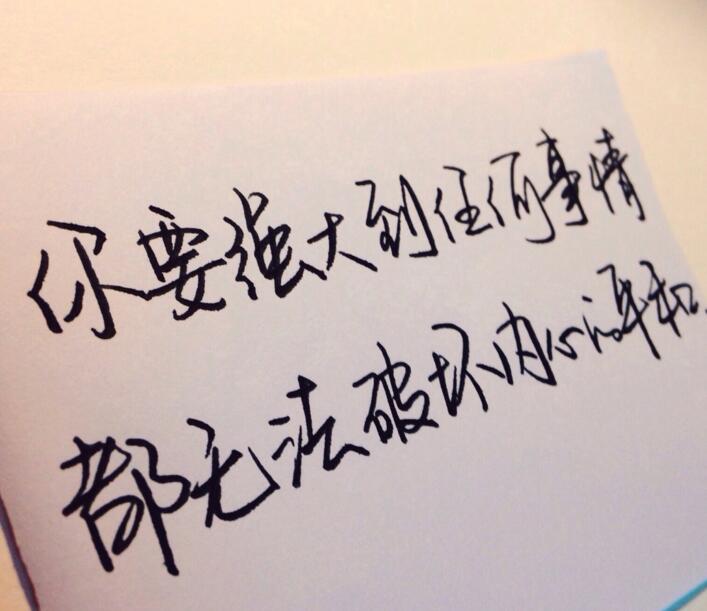 你要强大到任何事情
都无法破坏内心的平和